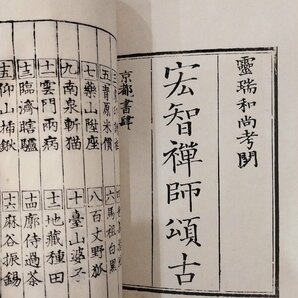 靈瑞和尚考閲
宏智禪師頌古
京都書肆
五 青原米價
六 馬祖白黑
七 藥山陞座
八 百丈野狐
九 南泉斬猫
十 臺山婆子
十一 雲門兩病
十二 地藏種田
十三 臨濟瞎驢
十四 廓侍過茶
十五 仰山插鍬
十六 麻谷振錫